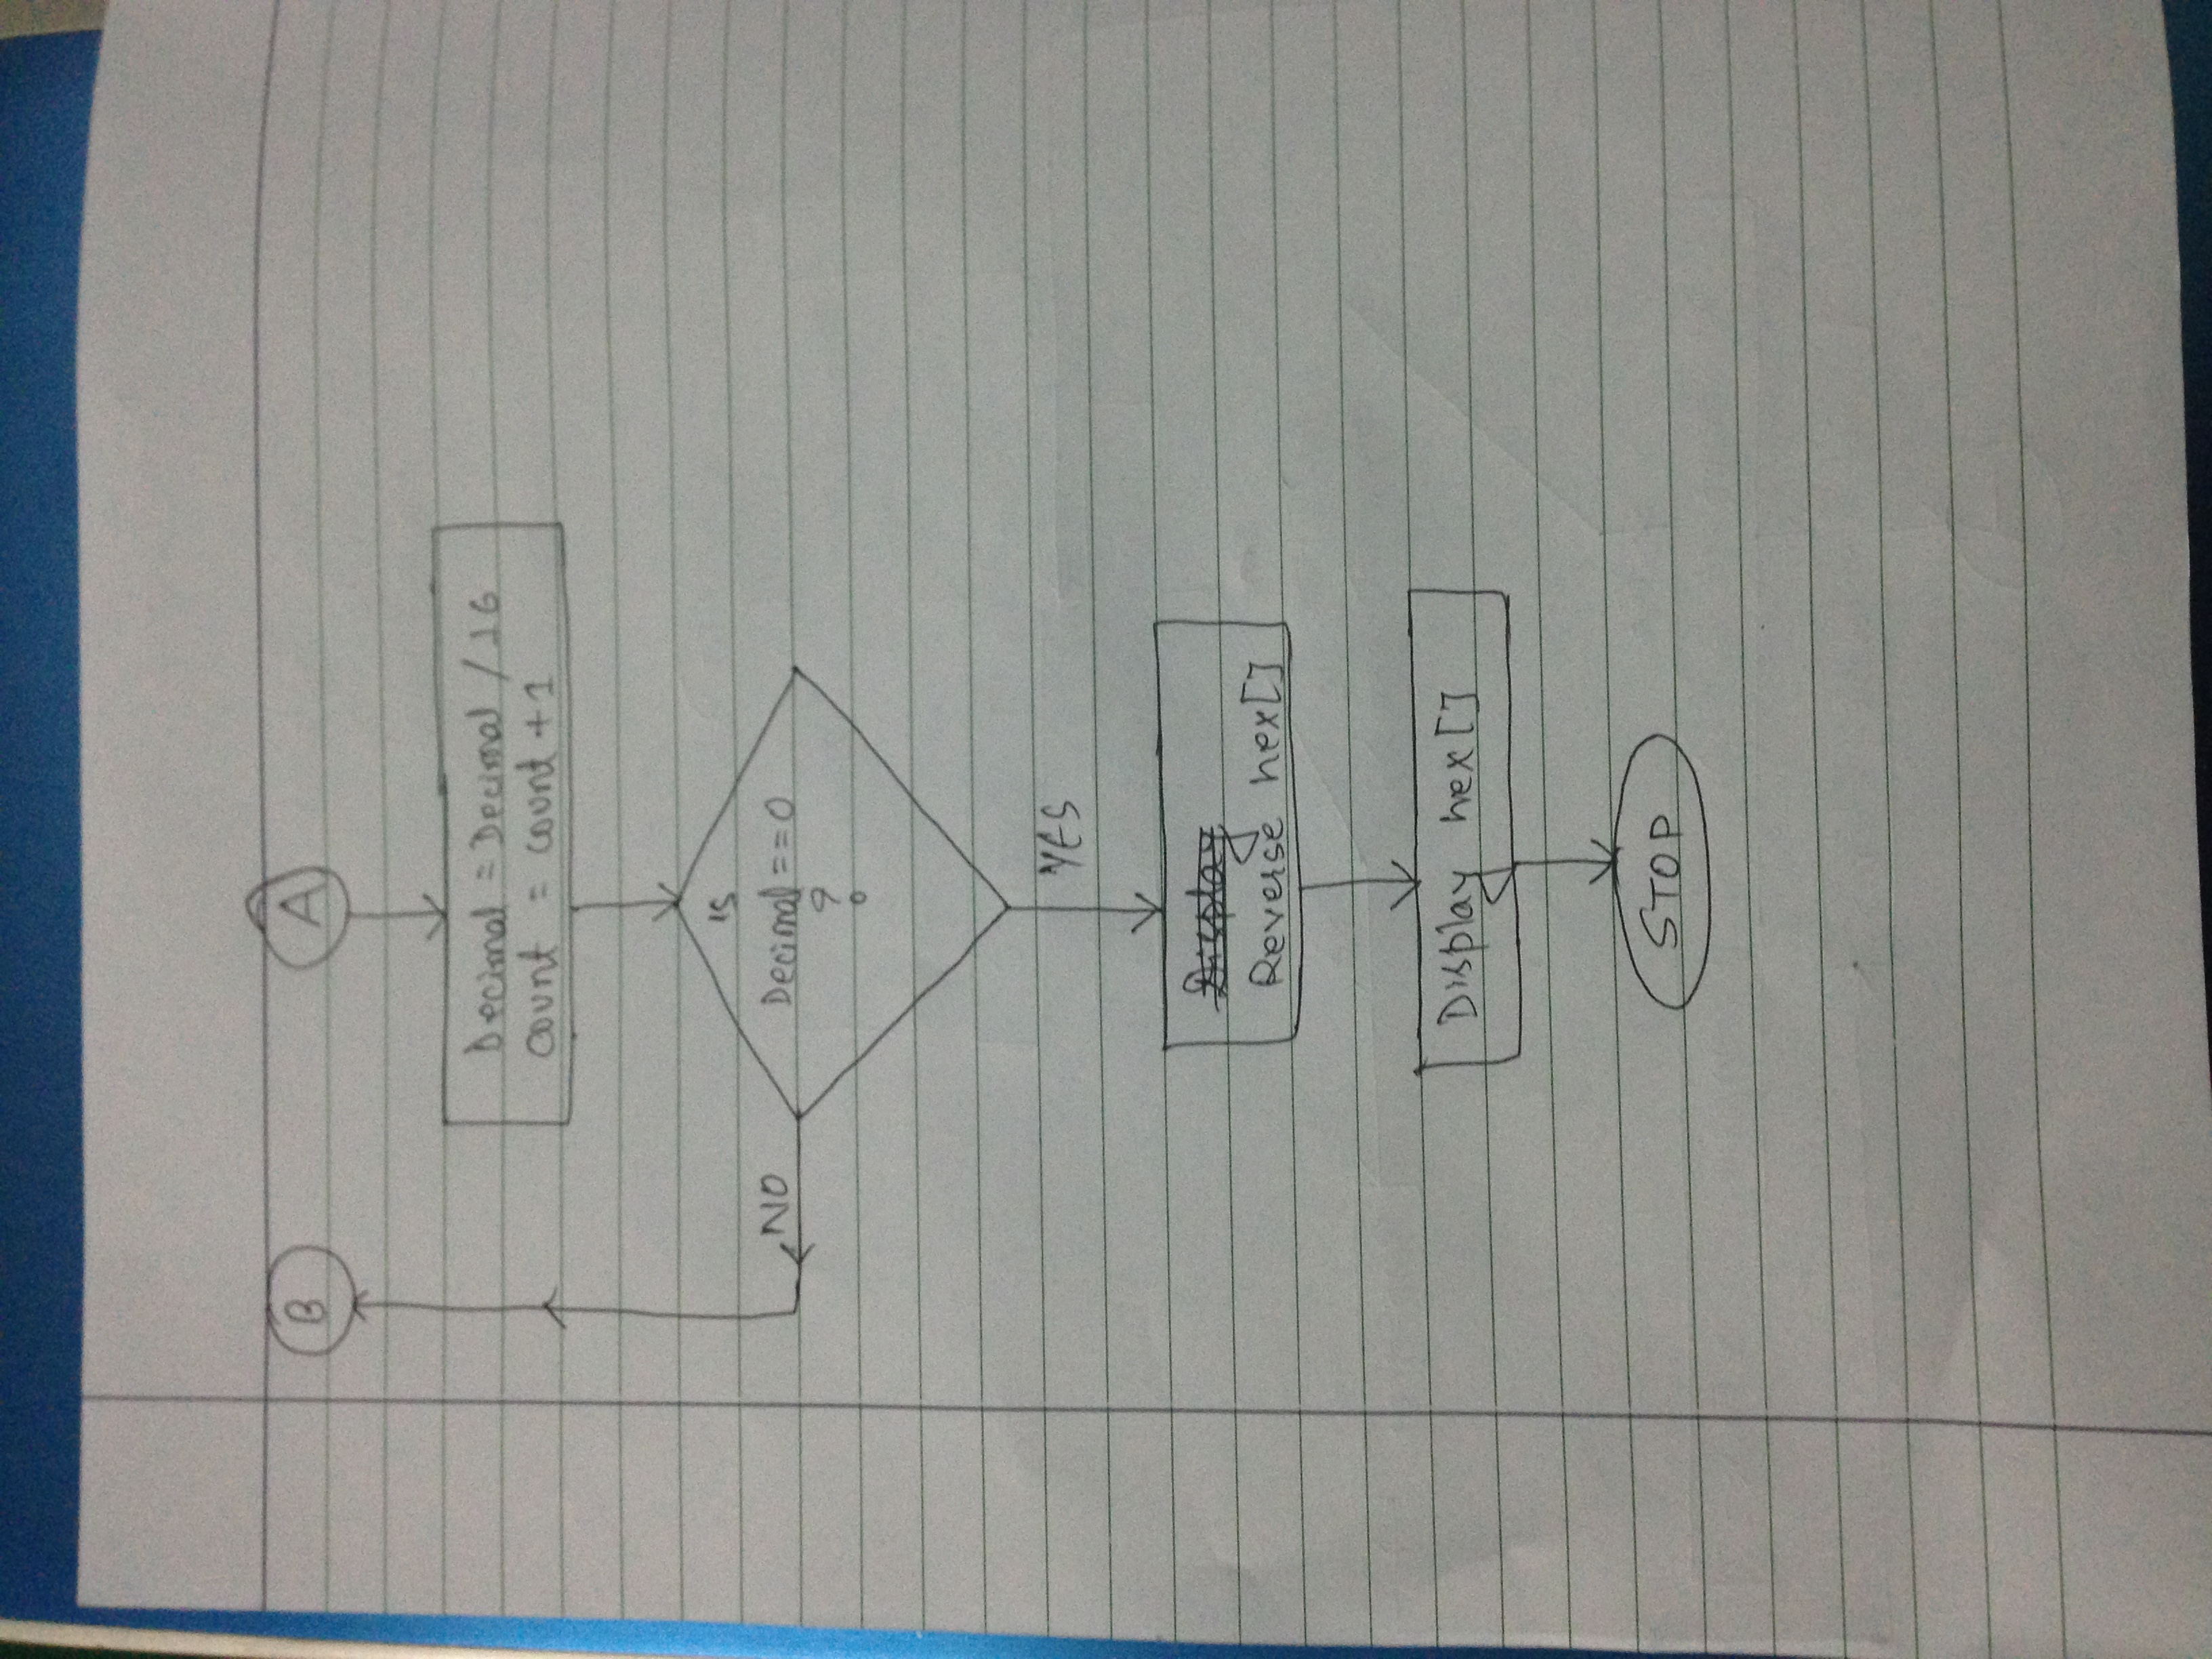 B
A
Decimal = Decimal / 16
count = count + 1
IS
Decimal == 0
?
NO
YES
Display
Reverse hex[]
Display hex[]
STOP